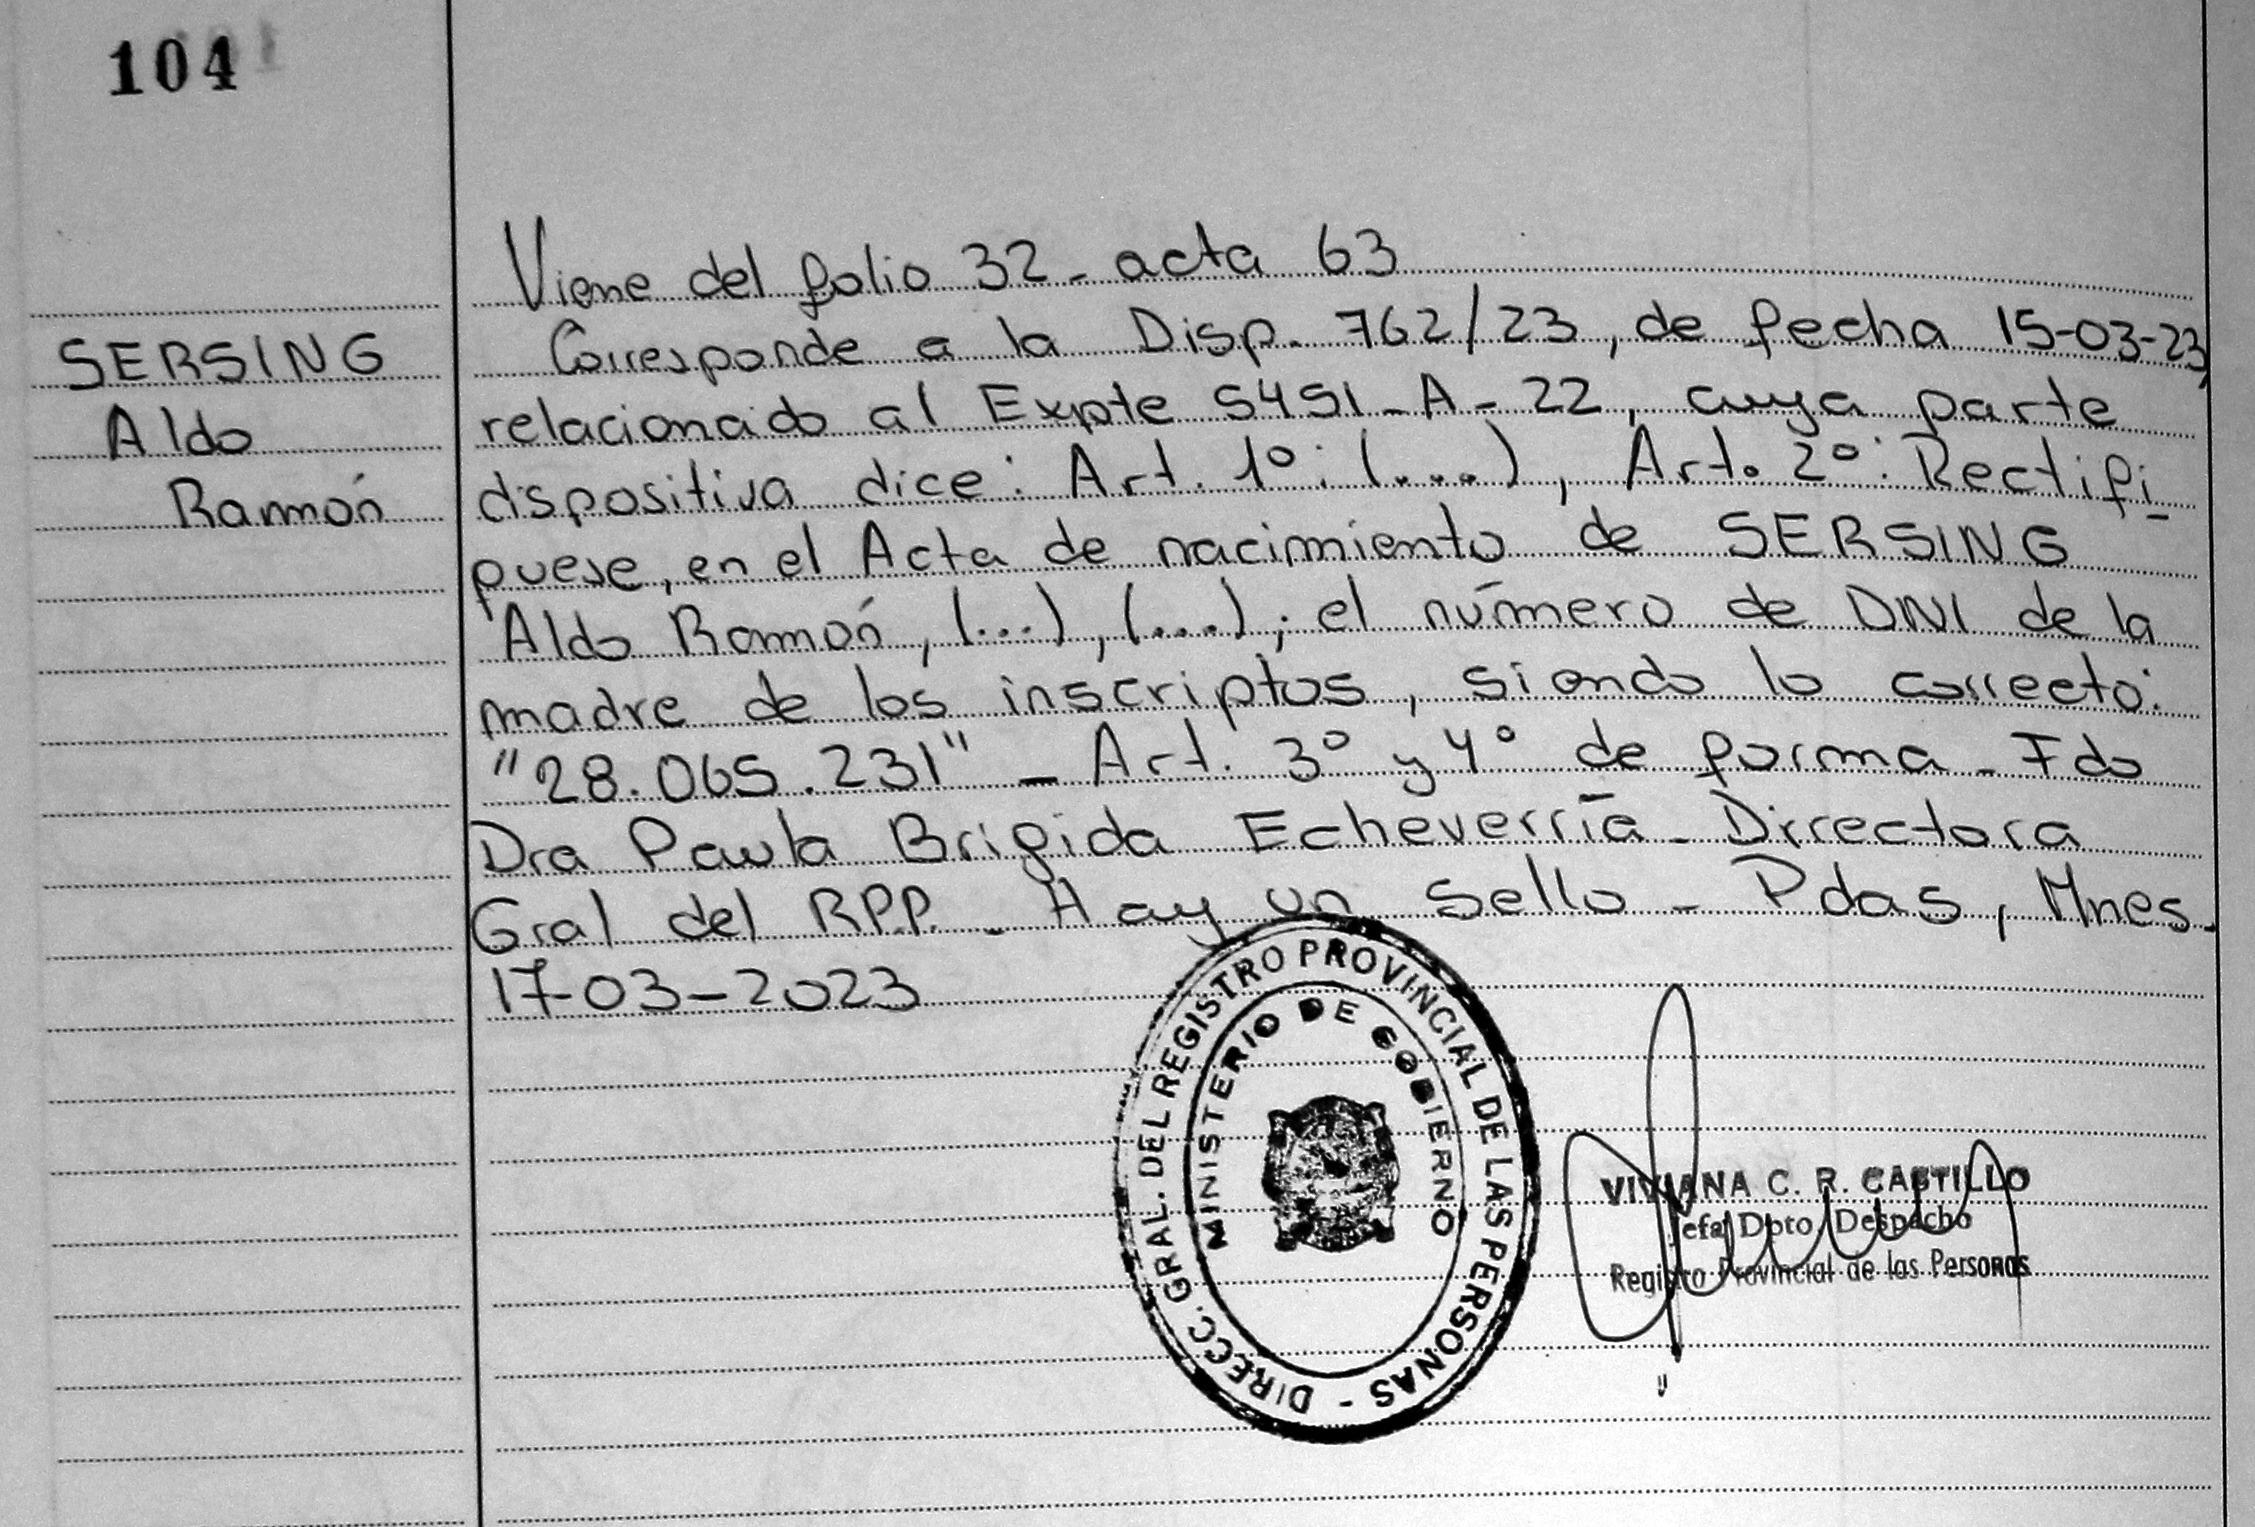 104
Viene del folio 32 - acta 63
SERSING
Aldo
Ramón
Corresponde a la Disp. 762/23, de fecha 15-03-23,
relacionado al Expte 5451-A-22, cuya parte
dispositiva dice: Art. 1º: (...), Art. 2º: Rectifi-
quese, en el Acta de nacimiento de SERSING
Aldo Ramón, (...), (...); el número de DNI de la
madre de los inscriptos, siendo lo correcto:
"28.065.231" - Art. 3º y 4º de forma - Fdo
Dra Paula Brigida Echeverría - Directora
Gral del RPP. - Hay un sello - Pdas, Mnes.
17-03-2023
DIRECC. GRAL. DEL REGISTRO PROVINCIAL DE LAS PERSONAS -
MINISTERIO DE GOBIERNO
VIVIANA C. R. CASTILLO
Jefa Dpto Despacho
Registro Provincial de las Personas